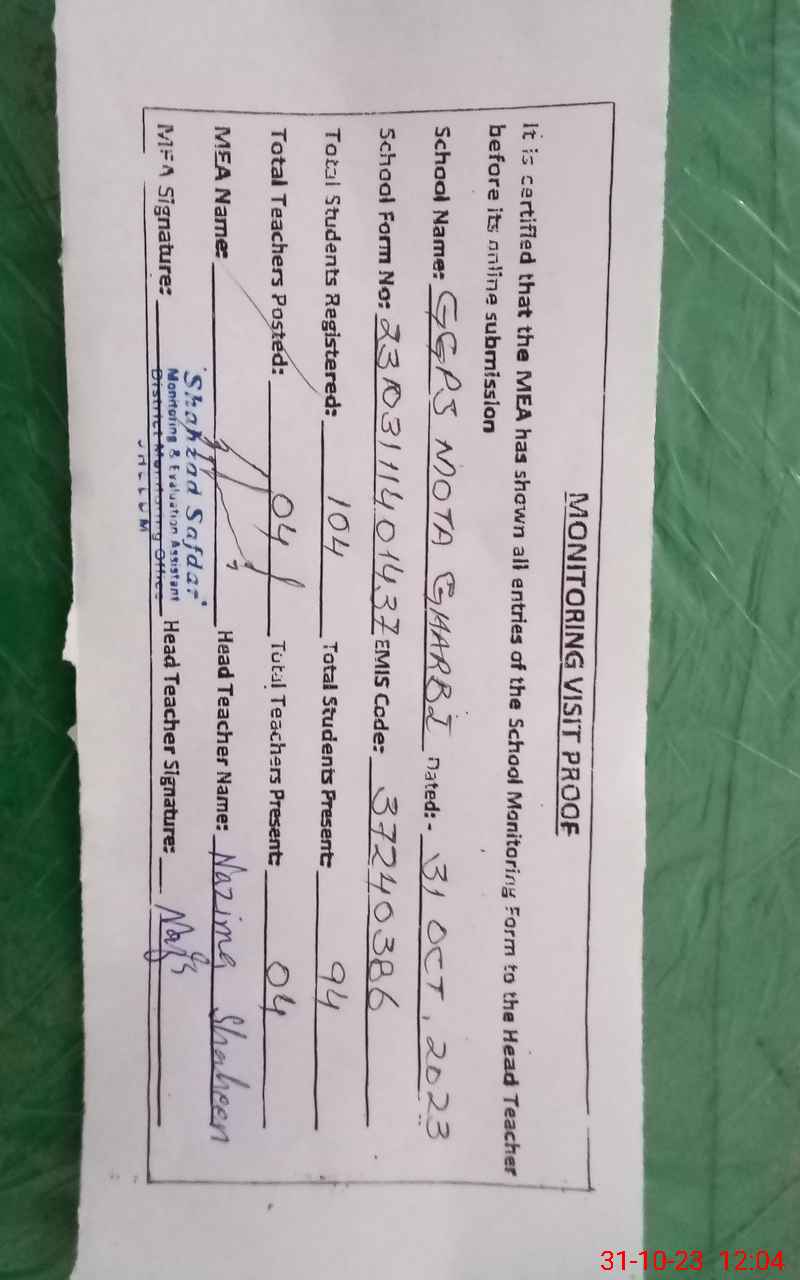 MONITORING VISIT PROOF
It is certified that the MEA has shown all entries of the School Monitoring Form to the Head Teacher
before its online submission
School Name: GGPS MOTA GHARBI Dated:- 31 OCT, 2023
School Form No: 23103111401437 EMIS Code: 37240386
Total Students Registered: 104 Total Students Present: 94
Total Teachers Posted: 04 Total Teachers Present: 04
MEA Name: Head Teacher Name: Nazima Shaheen
"Shahzad Safdar"
Monitoring & Evaluation Assistant
District Monitoring Office
JHELUM
MEA Signature: Head Teacher Signature:
31-10-23 12:04